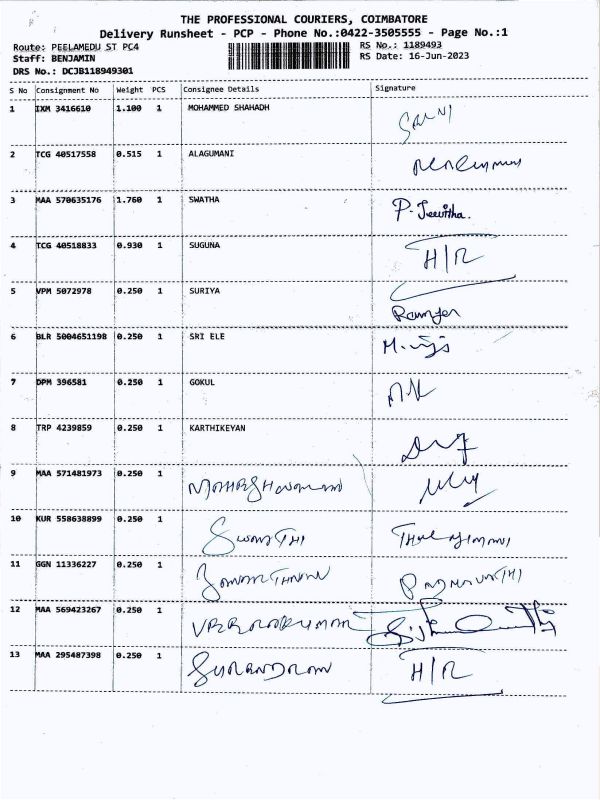 THE PROFESSIONAL COURIERS, COIMBATORE
Delivery Runsheet - PCP - Phone No.:0422-3505555 - Page No.:1
Route: PEELAMEDU ST PC4 RS No.: 1189493
Staff: BENJAMIN RS Date: 16-Jun-2023
DRS No.: DCJB118949301
S No Consignment No Weight PCS Consignee Details Signature
1 IXM 3416610 1.100 1 MOHAMMED SHAHADH
2 TCG 40517558 0.515 1 ALAGUMANI
3 MAA 570635176 1.760 1 SWATHA P. Jeevitha.
4 TCG 40518833 0.930 1 SUGUNA H/R
5 VPM 5072978 0.250 1 SURIYA
6 BLR 5004651198 0.250 1 SRI ELE
7 DPM 396581 0.250 1 GOKUL
8 TRP 4239859 0.250 1 KARTHIKEYAN
9 MAA 571481973 0.250 1
10 KUR 558638899 0.250 1 SWATHI
11 GGN 11336227 0.250 1
12 MAA 569423267 0.250 1
13 MAA 295487398 0.250 1 H/R